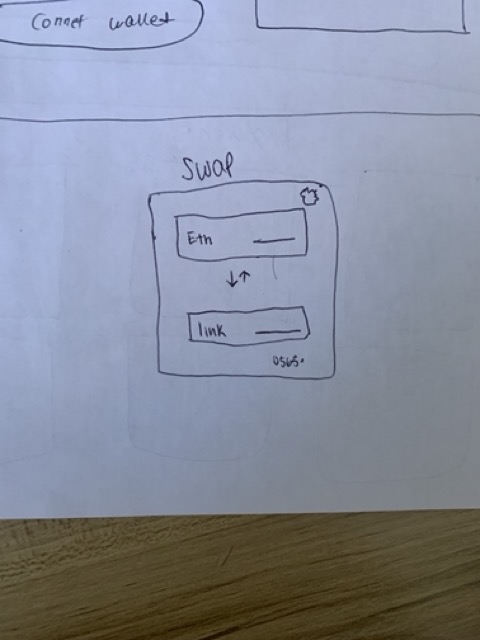 Connet wallet
Swap
Eth
↓↑
link